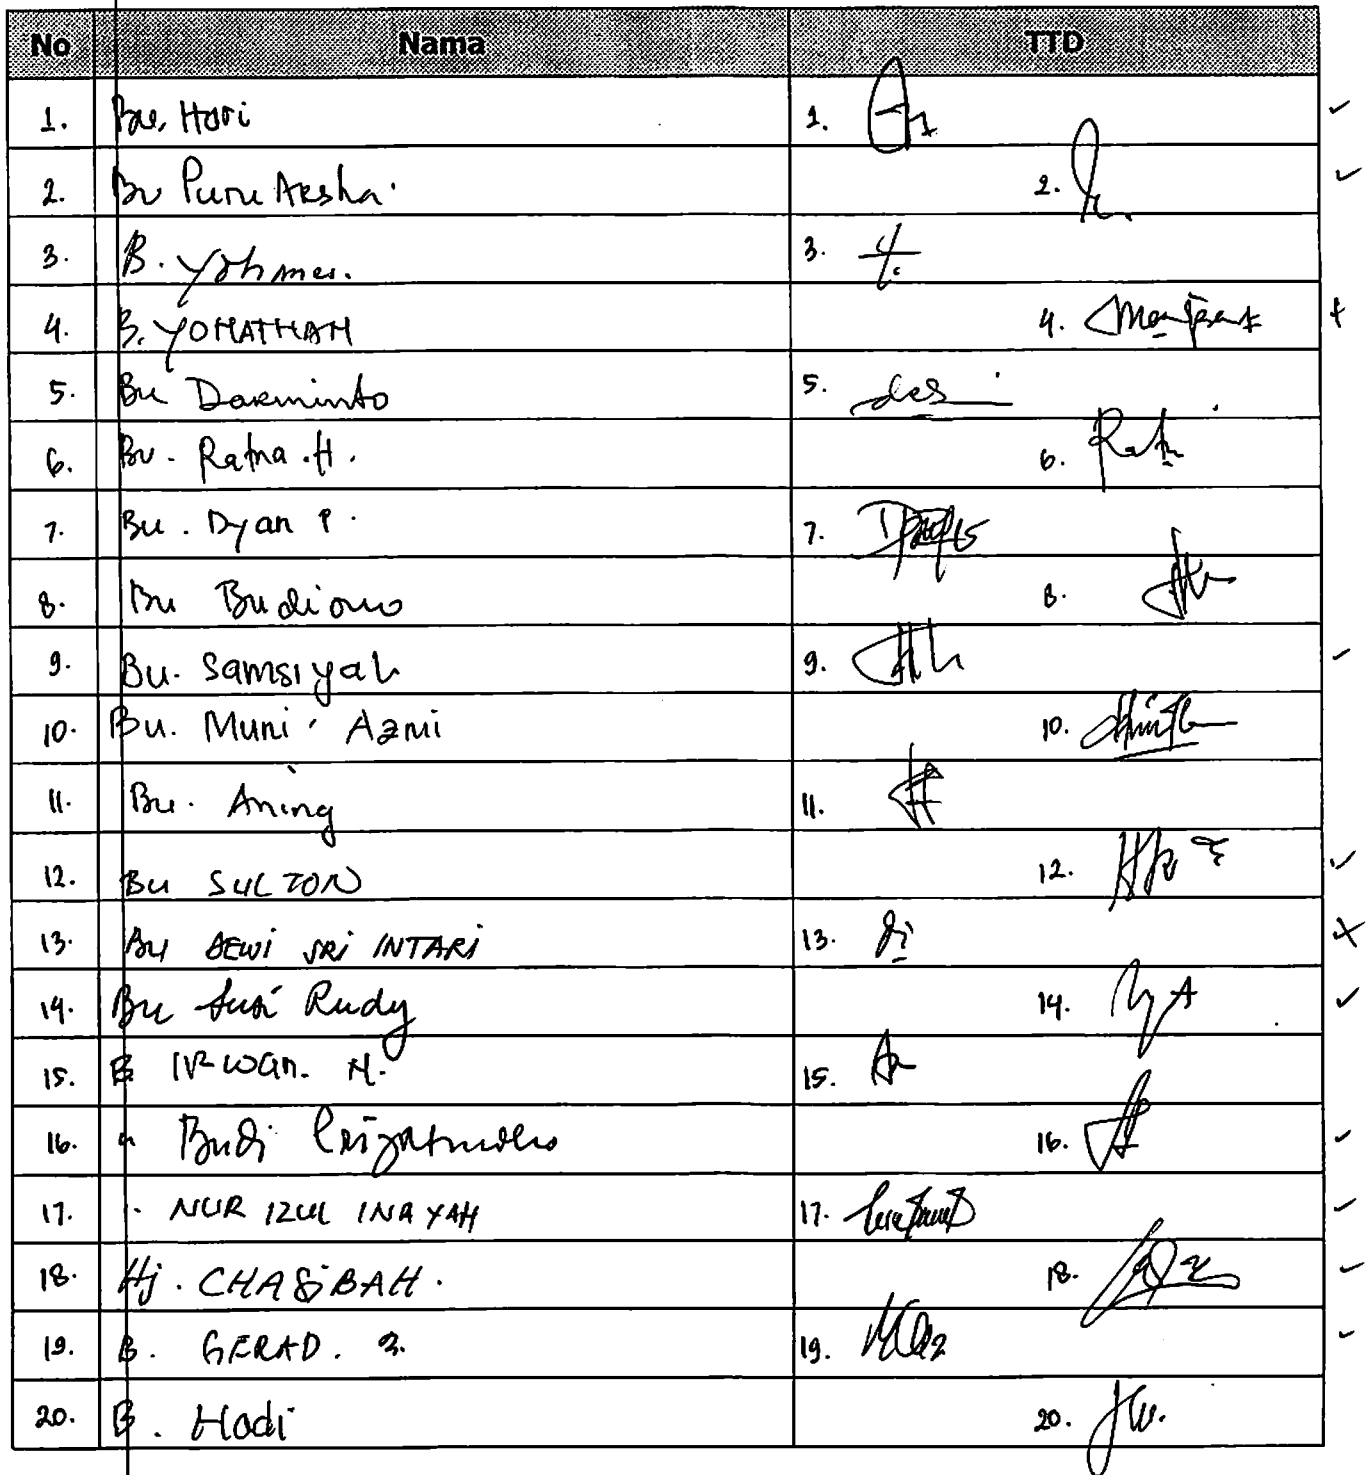 No Nama TTD
1. Bu. Hari 1.
2. Bu Puru Aksha. 2.
3. B. Yohanes. 3.
4. B. YONATHAN 4.
5. Bu Darminto 5. des
6. Bu. Ratna. H. 6. Rat
7. Bu. Dyan P. 7.
8. Bu Budiono 8.
9. Bu. Samsiyah 9.
10. Bu. Muni. Azmi 10.
11. Bu. Aning 11.
12. Bu SULTON 12.
13. BU DEWI SRI INTARI 13.
14. Bu Susi Rudy 14.
15. B IRWan. H. 15.
16. " Budi 16.
17. NUR IZUL INAYAH 17.
18. Hj. CHASIBAH. 18.
19. B. GERAD. 19.
20. B. Hadi 20.